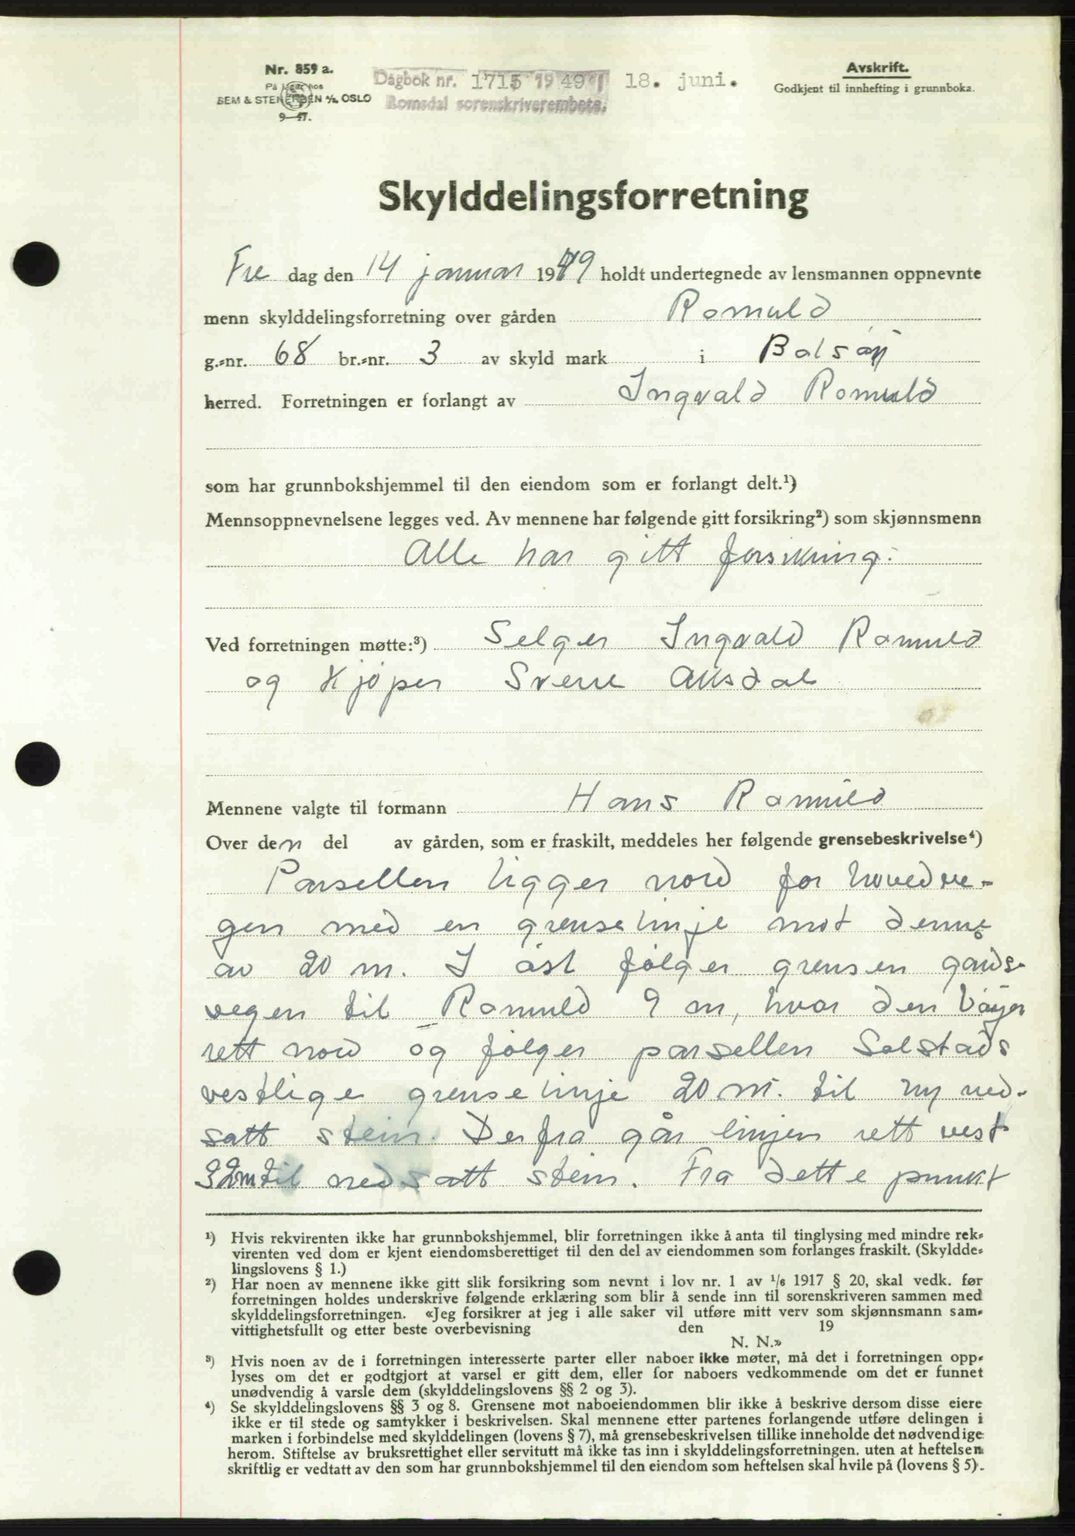 Nr. 859 a.
På lager hos
SEM & STENERSEN A/S, OSLO
9—47.
Dagbok nr. 1715 1949 18. juni.
Romsdal sorenskriverembete.
Avskrift.
Godkjent til innhefting i grunnboka.
Skylddelingsforretning
Fre dag den 14 januar 1949 holdt undertegnede av lensmannen oppnevnte
menn skylddelingsforretning over gården Romuld
g.-nr. 68 br.-nr. 3 av skyld mark i Bolsøy
herred. Forretningen er forlangt av Ingvald Romuld
som har grunnbokshjemmel til den eiendom som er forlangt delt.¹)
Mennsoppnevnelsene legges ved. Av mennene har følgende gitt forsikring²) som skjønnsmenn
Alle har gitt forsikring.
Ved forretningen møtte:³) Selger Ingvald Romuld
og Kjøper Sverre
Mennene valgte til formann Hans Romuld
Over den del av gården, som er fraskilt, meddeles her følgende grensebeskrivelse⁴)
Parsellen ligger nord for hovedve-
gen med en grenselinje mot denne
av 20 m. I øst følger grensen gards-
vegen til Romuld 9 m, hvor den bøyer
rett nord og følger parsellen Solstads
vestlige grenselinje 20 m. til ny ned-
satt stein. Derfra går linjen rett vest
32m til nedsatt stein. Fra dette punkt
¹) Hvis rekvirenten ikke har grunnbokshjemmel, blir forretningen ikke å anta til tinglysing med mindre rek-
virenten ved dom er kjent eiendomsberettiget til den del av eiendommen som forlanges fraskilt. (Skyldde-
lingslovens § 1.)
²) Har noen av mennene ikke gitt slik forsikring som nevnt i lov nr. 1 av 1/6 1917 § 20, skal vedk. før
forretningen holdes underskrive følgende erklæring som blir å sende inn til sorenskriveren sammen med
skylddelingsforretningen. «Jeg forsikrer at jeg i alle saker vil utføre mitt verv som skjønnsmann sam-
vittighetsfullt og etter beste overbevisning den 19
N. N.»
³) Hvis noen av de i forretningen interesserte parter eller naboer ikke møter, må det i forretningen opp-
lyses om det er godtgjort at varsel er gitt dem, eller for naboers vedkommende om det er funnet
unødvendig å varsle dem (skylddelingslovens §§ 2 og 3).
⁴) Se skylddelingslovens §§ 3 og 8. Grensene mot naboeiendommen blir ikke å beskrive dersom disse eiere
ikke er til stede og samtykker i beskrivelsen. Skal mennene etter partenes forlangende utføre delingen i
marken i forbindelse med skylddelingen (lovens § 7), må grensebeskrivelsen tillike inneholde det nødvendige
herom. Stiftelse av bruksrettighet eller servitutt må ikke tas inn i skylddelingsforretningen, uten at heftelsen
skriftlig er vedtatt av den som har grunnbokshjemmel til den eiendom som heftelsen skal hvile på (lovens § 5).